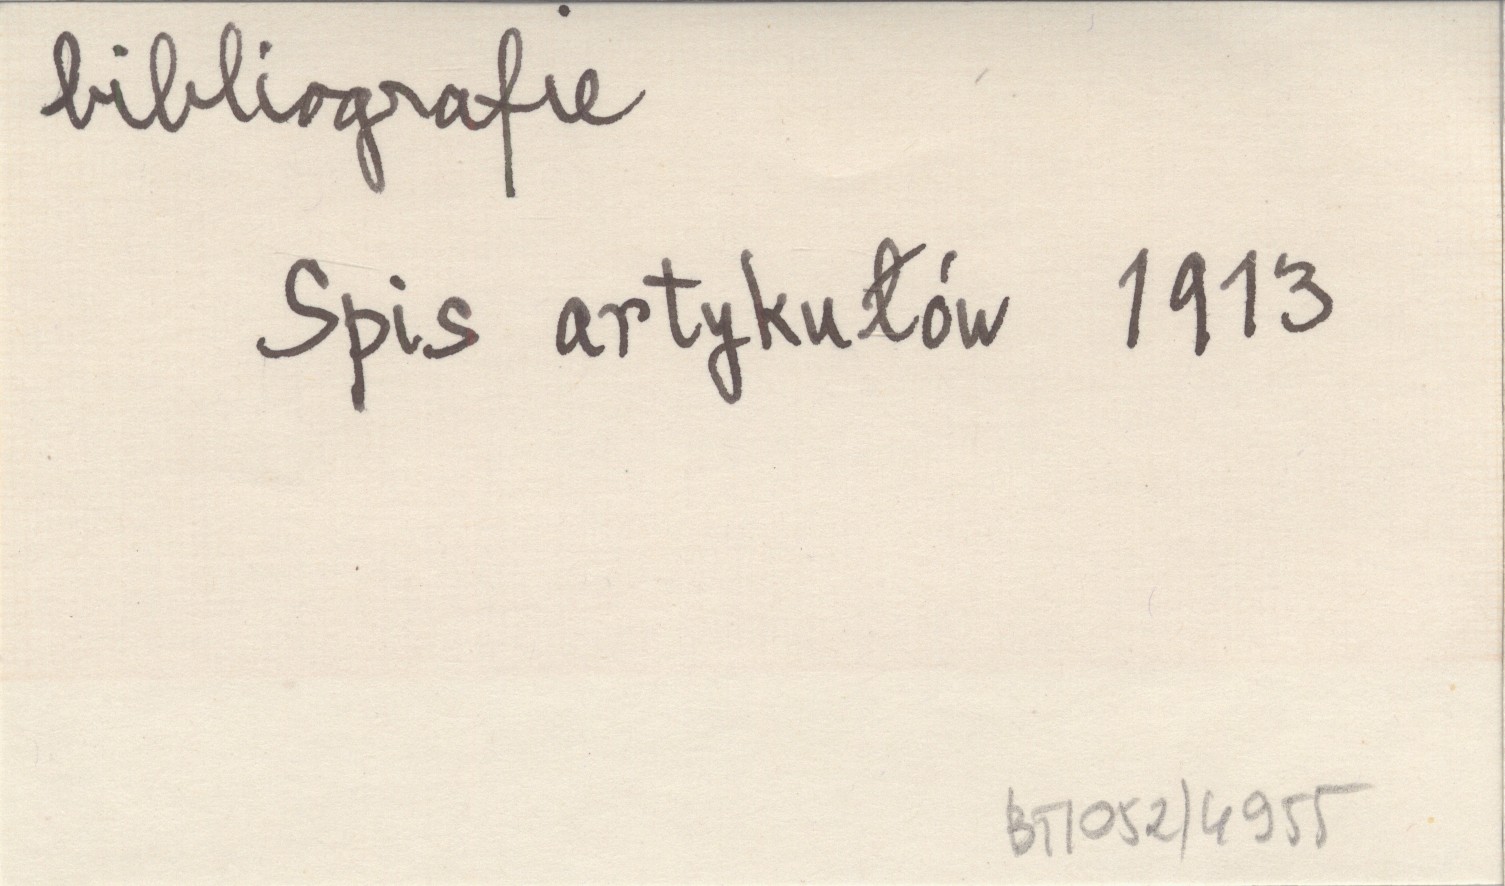 bibliografie
Spis artykułów 1913
BT1052/4955